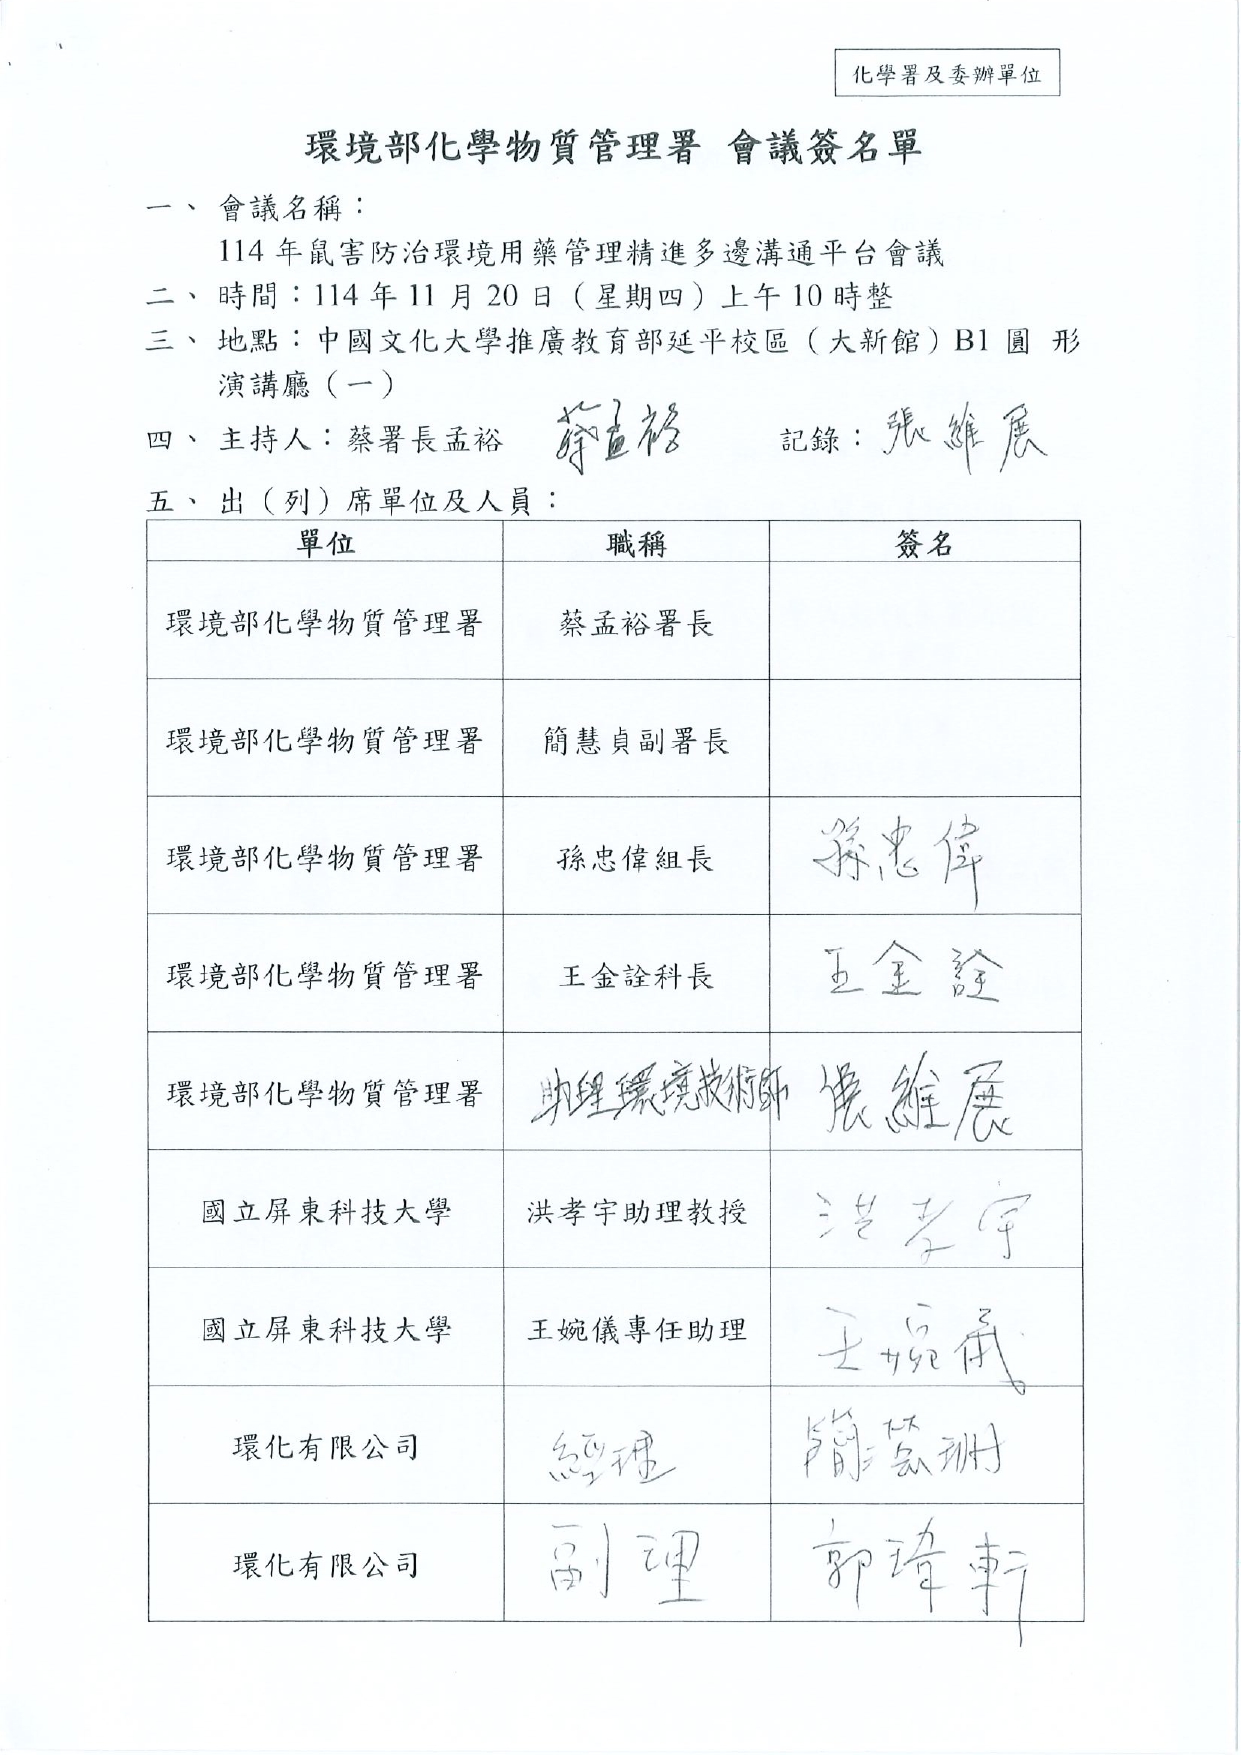 化學署及委辦單位
環境部化學物質管理署 會議簽名單
一、 會議名稱：
114年鼠害防治環境用藥管理精進多邊溝通平台會議
二、 時間：114年11月20日（星期四）上午10時整
三、 地點：中國文化大學推廣教育部延平校區（大新館）B1圓 形
演講廳（一）
四、 主持人：蔡署長孟裕 蔡孟裕 記錄：張維展
五、 出（列）席單位及人員：
單位 職稱 簽名
環境部化學物質管理署 蔡孟裕署長
環境部化學物質管理署 簡慧貞副署長
環境部化學物質管理署 孫忠偉組長 孫忠偉
環境部化學物質管理署 王金詮科長 王金詮
環境部化學物質管理署 助理環境技術師 張維展
國立屏東科技大學 洪孝宇助理教授 洪孝宇
國立屏東科技大學 王婉儀專任助理 王婉儀
環化有限公司 經理 簡
環化有限公司 副理 郭瑋軒